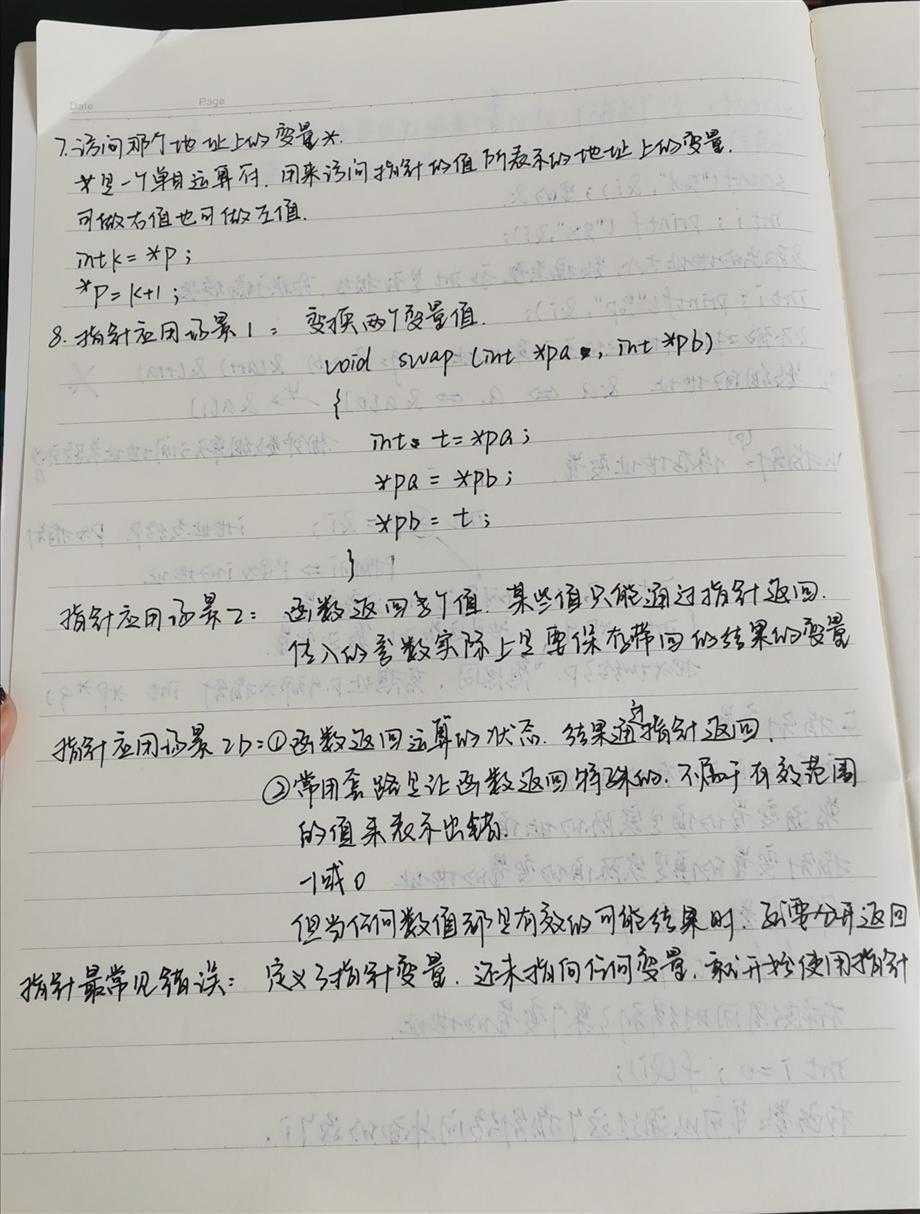 Date Page
7.访问那个地址上的变量*.
*是一个单目运算符.用来访问指针的值所表示的地址上的变量.
可做右值也可做左值.
int k=*p;
*p=k+1;
8.指针应用场景1: 交换两个变量值.
void swap (int *pa , int *pb)
{
int t=*pa;
*pa = *pb;
*pb = t;
}
指针应用场景2: 函数返回多个值.某些值只能通过指针返回.
传入的参数实际上是要保存带回的结果的变量
指针应用场景2b:①函数返回运算的状态.结果通过指针返回.
②常用套路是让函数返回特殊的.不属于有效范围
的值来表示出错.
-1或0
但当任何数值都是有效的可能结果时.就要分开返回
指针最常见错误: 定义了指针变量.还未指向任何变量.就开始使用指针